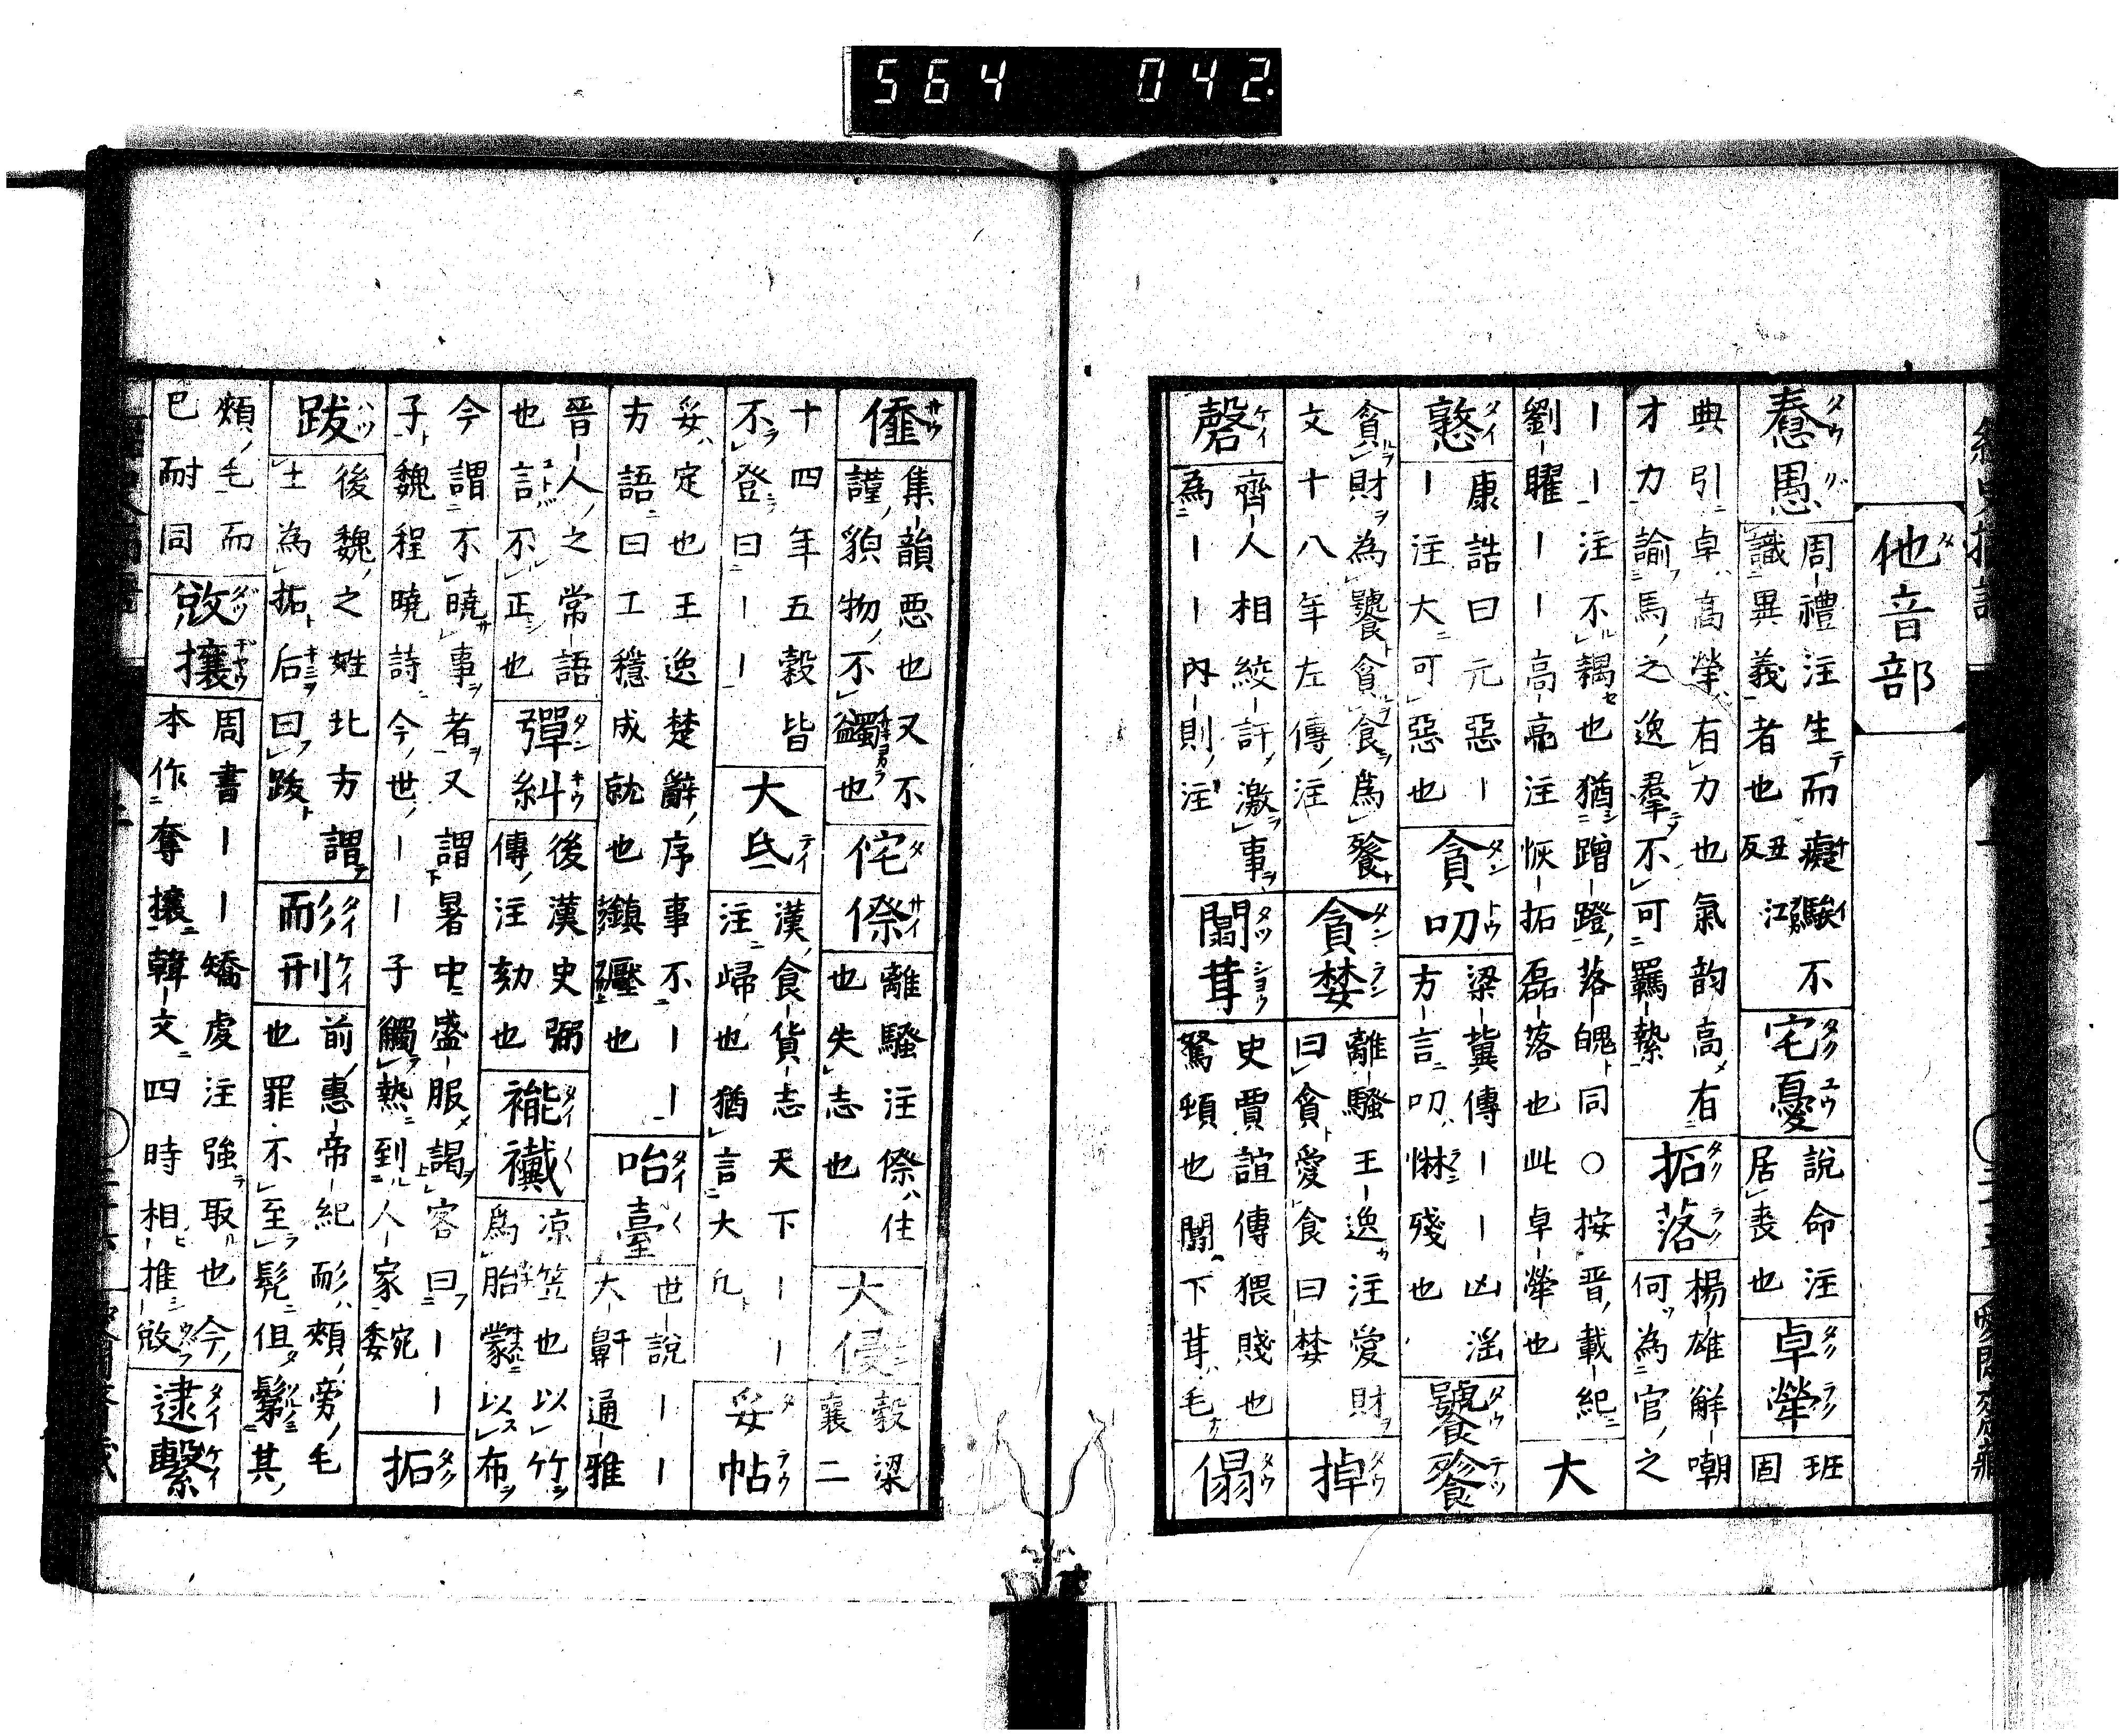 564 042.
他音部
惷愚 周禮注生而癡騃不識異義者也 丑江反 宅憂 說命注居喪也 卓犖 班固
典引卓高犖有力也氣韵高有才力諭馬之逸羣不可羈縶 拓落 楊雄解嘲何為官之
ーー注不耦也猶蹭蹬落魄同○按晋載紀劉曜ーー高亮注恢拓磊落也此卓犖也 大
憝 康誥曰元惡ーー注大可惡也 貪叨 梁冀傳ーー凶淫方言叨惏殘也 饕餮
貪財為饕貪食為餮文十八年左傳注 貪婪 離騷王逸注愛財曰貪愛食曰婪 掉
磬 齊人相絞訐激事為ーー內則注 闒茸 史賈誼傳猥賤也駑頓也闒下茸毛 傝
𠌯 集韻惡也又不謹貌物不蠲也 侘傺 離騷注傺住也失志也 大侵 穀梁襄二
十四年五穀皆不登曰ーー 大氐 漢食貨志天下ーー注歸也猶言大凡 妥帖
妥定也王逸楚辭序事不ーー方語曰工穩成就也鎮壓也 咍臺 世說ーー大鼾通雅
晉人之常語也言不正也 彈糾 後漢史弼傳注劾也 褦襶 凉笠也以竹為胎蒙以布
今謂不曉事者又謂暑中盛服謁客曰ーー子魏程曉詩今世ーー子觸熱到人家委宛ー 拓
跋 後魏之姓北方謂土為拓后曰跋 耏刑 前惠帝紀耏頰旁毛也罪不至髡但鬄其
頰毛而已耐同 敓攘 周書ーー矯虔注強取也今本作奪攘韓文四時相推敓 逮繫